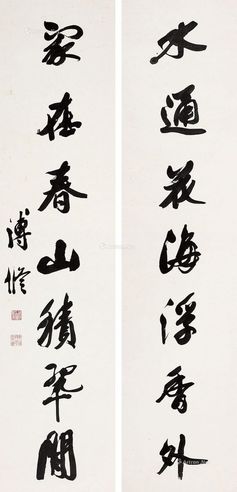 水通花海浮香外
家在春山積翠間
溥僩